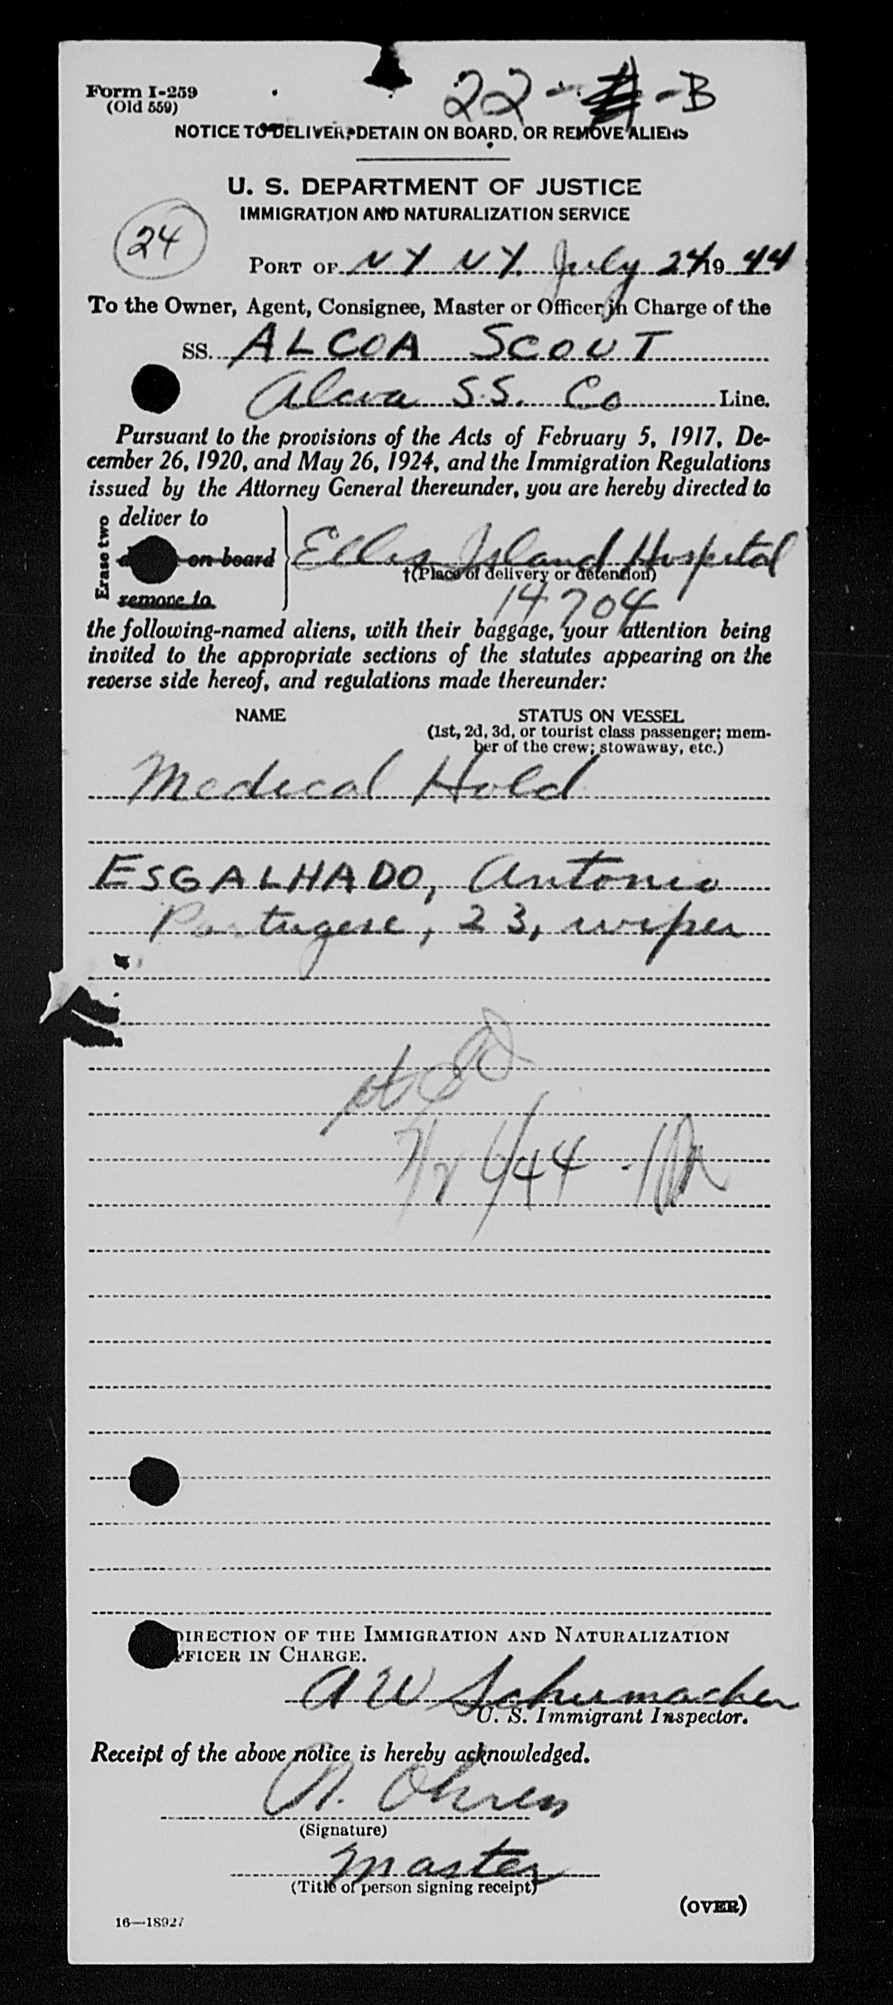 Form I-259
(Old 559)
22- -B
NOTICE TO DELIVER, DETAIN ON BOARD, OR REMOVE ALIENS
U. S. DEPARTMENT OF JUSTICE
IMMIGRATION AND NATURALIZATION SERVICE
24
PORT OF NY NY July 24, 1944
To the Owner, Agent, Consignee, Master or Officer in Charge of the
SS. ALCOA SCOUT
Alcoa S.S. Co Line.
Pursuant to the provisions of the Acts of February 5, 1917, De-
cember 26, 1920, and May 26, 1924, and the Immigration Regulations
issued by the Attorney General thereunder, you are hereby directed to
Erase two
deliver to
on board
remove to
Ellis Island Hospital
†(Place of delivery or detention)
14704
the following-named aliens, with their baggage, your attention being
invited to the appropriate sections of the statutes appearing on the
reverse side hereof, and regulations made thereunder:
NAME
STATUS ON VESSEL
(1st, 2d, 3d, or tourist class passenger; mem-
ber of the crew; stowaway, etc.)
Medical Hold
ESGALHADO, Antonio
Portugese, 23, wiper
7/26/44
DIRECTION OF THE IMMIGRATION AND NATURALIZATION
OFFICER IN CHARGE.
A W Schumacher
U. S. Immigrant Inspector.
Receipt of the above notice is hereby acknowledged.
N. Ohren
(Signature)
Master
(Title of person signing receipt)
(OVER)
16—18927